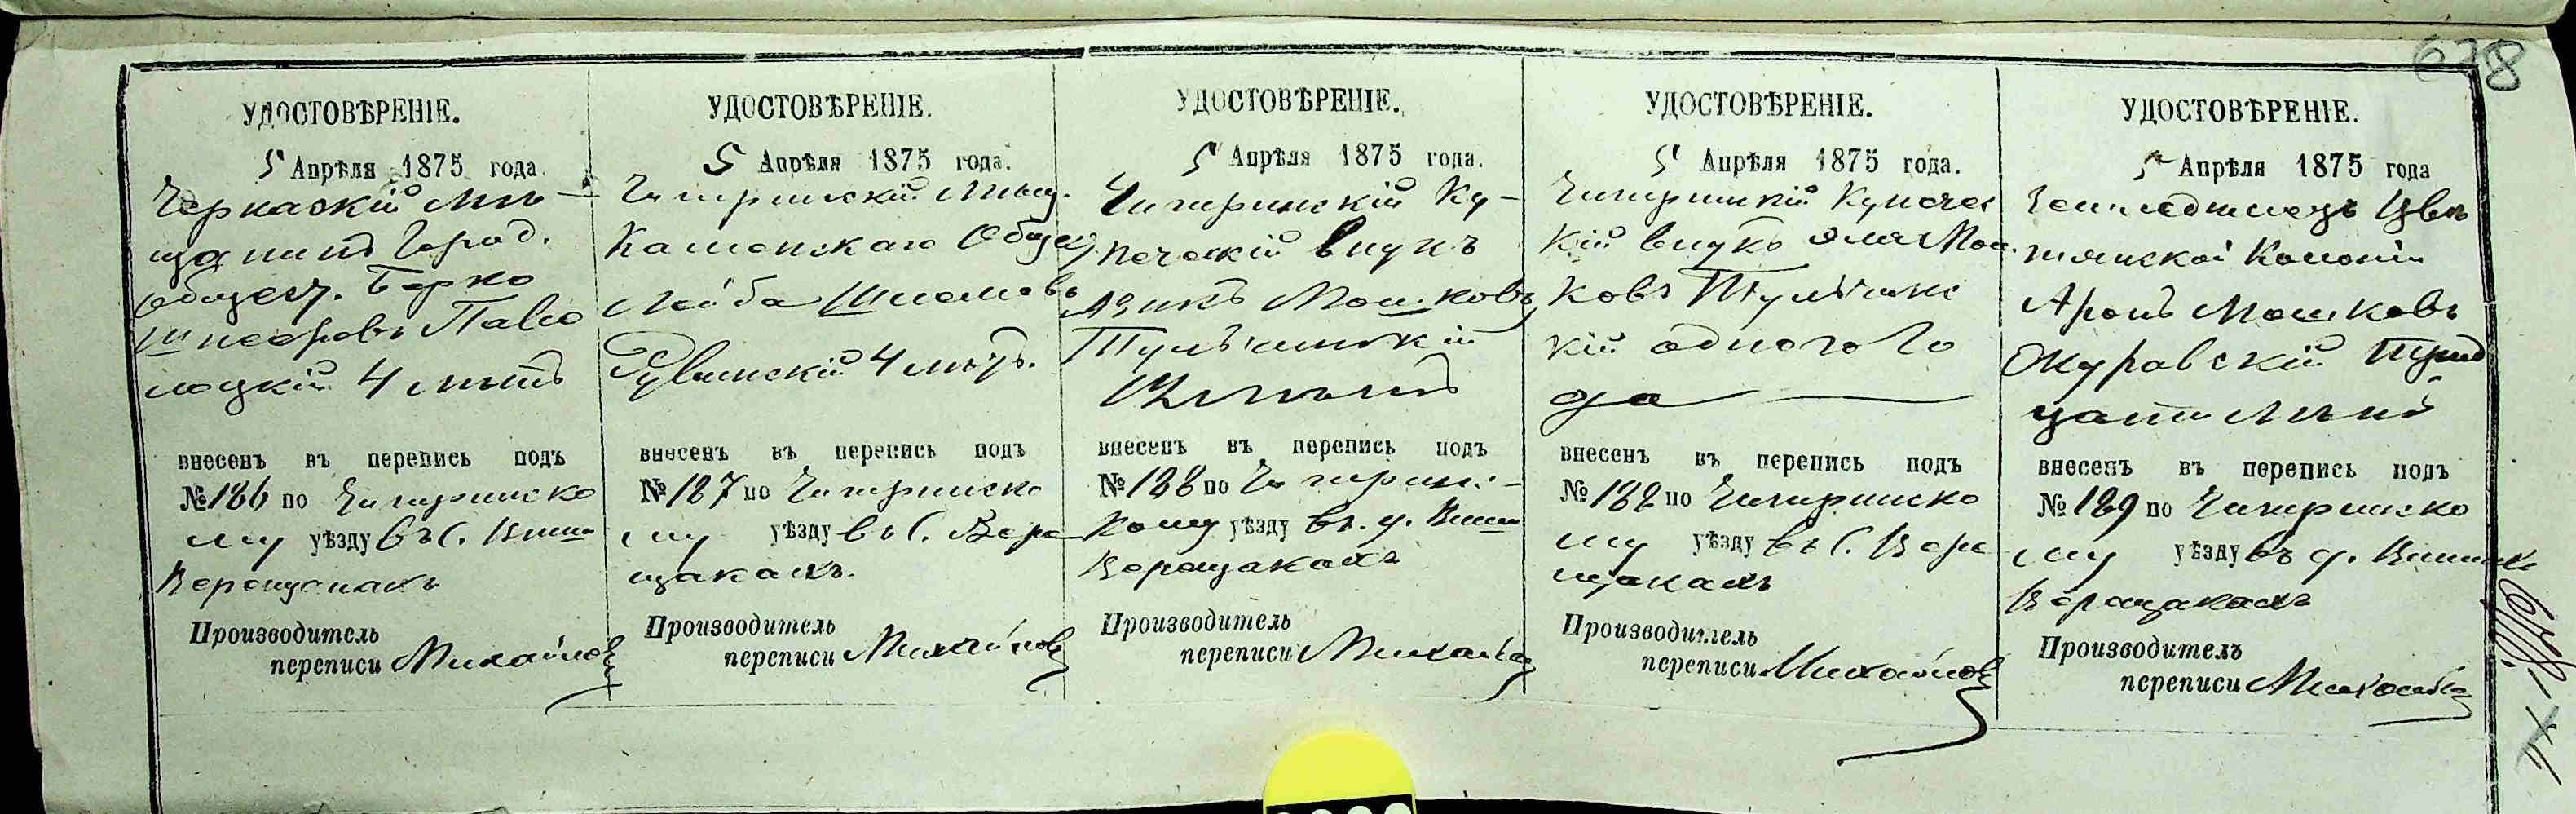 678
УДОСТОВѢРЕНІЕ.
5 Апрѣля 1875 года
Черкаскій мѣ-
щанинъ Город.
общест. Берко
Шнееровъ Паво
лоцкій 4 лѣтъ
внесенъ въ перепись подъ
№ 186 по Чигиринско
му уѣзду въ С.
Верещакахъ
Производитель
переписи Михайловъ
УДОСТОВѢРЕНІЕ.
5 Апрѣля 1875 года.
Чигиринскій мѣщ.
Каменскаго Общест.
Лейба Шлемовъ
4 лѣтъ.
внесенъ въ перепись подъ
№ 187 по Чигиринско
му уѣзду въ С. Вере
щакахъ.
Производитель
переписи Михайловъ
УДОСТОВѢРЕНІЕ.
5 Апрѣля 1875 года.
Чигиринскій Ку-
печескій внукъ
Мошковъ
Тульчинскій
внесенъ въ перепись подъ
№ 188 по Чигиринс-
кому уѣзду въ д.
Верещакахъ
Производитель
переписи Михайловъ
УДОСТОВѢРЕНІЕ.
5 Апрѣля 1875 года.
Чигиринскій Купечес
кій внукъ Мош
ковъ Тульчинс
кій одного го
да
внесенъ въ перепись подъ
№ 188 по Чигиринско
му уѣзду въ С. Вере
щакахъ
Производитель
переписи Михайловъ
УДОСТОВѢРЕНІЕ.
5 Апрѣля 1875 года
Земледѣлецъ
Колоніи
Аронъ Мошковъ
Журавскій Трид
цати лѣтъ
внесенъ въ перепись подъ
№ 189 по Чигиринско
му уѣзду въ д.
Верещакахъ
Производитель
переписи Михайловъ